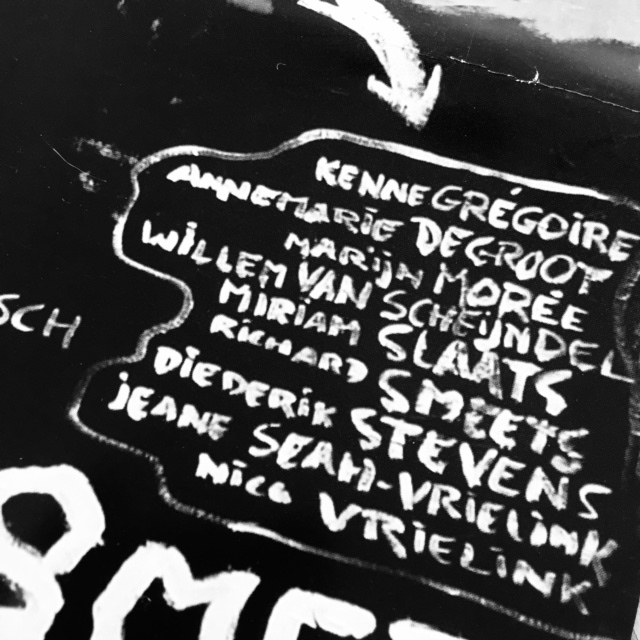 KENNE GRÉGOIRE
ANNEMARIE DEGROOT
MARIJN MORÉE
WILLEM VAN SCHEIJNDEL
MIRIAM SLAATS
RICHARD SMEETS
DIEDERIK STEVENS
JEANE SEAH-VRIELINK
NICO VRIELINK
SCH